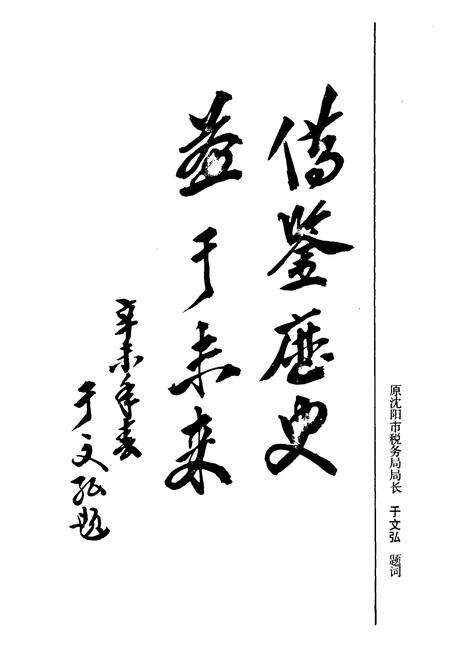 借鉴歷史
益于未来
辛未年春
于文弘题
原沈阳市税务局局长 于文弘 题词